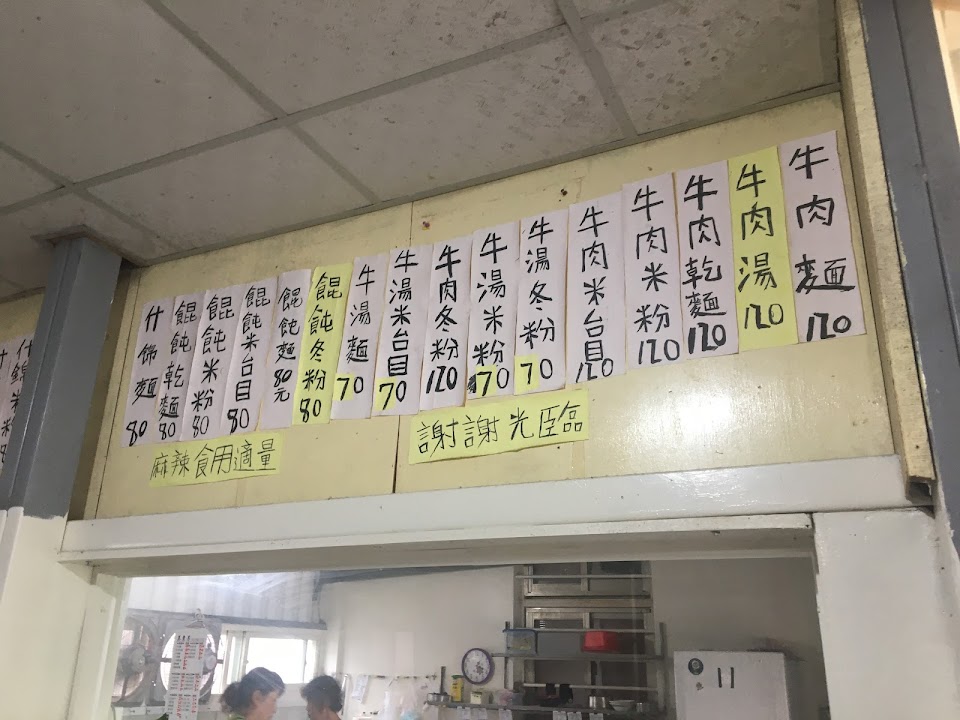 牛肉麵120
牛肉湯120
牛肉乾麵120
牛肉米粉120
牛肉米台目120
牛湯冬粉70
牛湯米粉70
牛肉冬粉120
牛湯米台目70
牛湯麵70
餛飩冬粉80
餛飩麵80元
餛飩米台目80
餛飩米粉80
餛飩乾麵80
什錦麵80
什錦米粉
謝謝光臨
麻辣食用適量